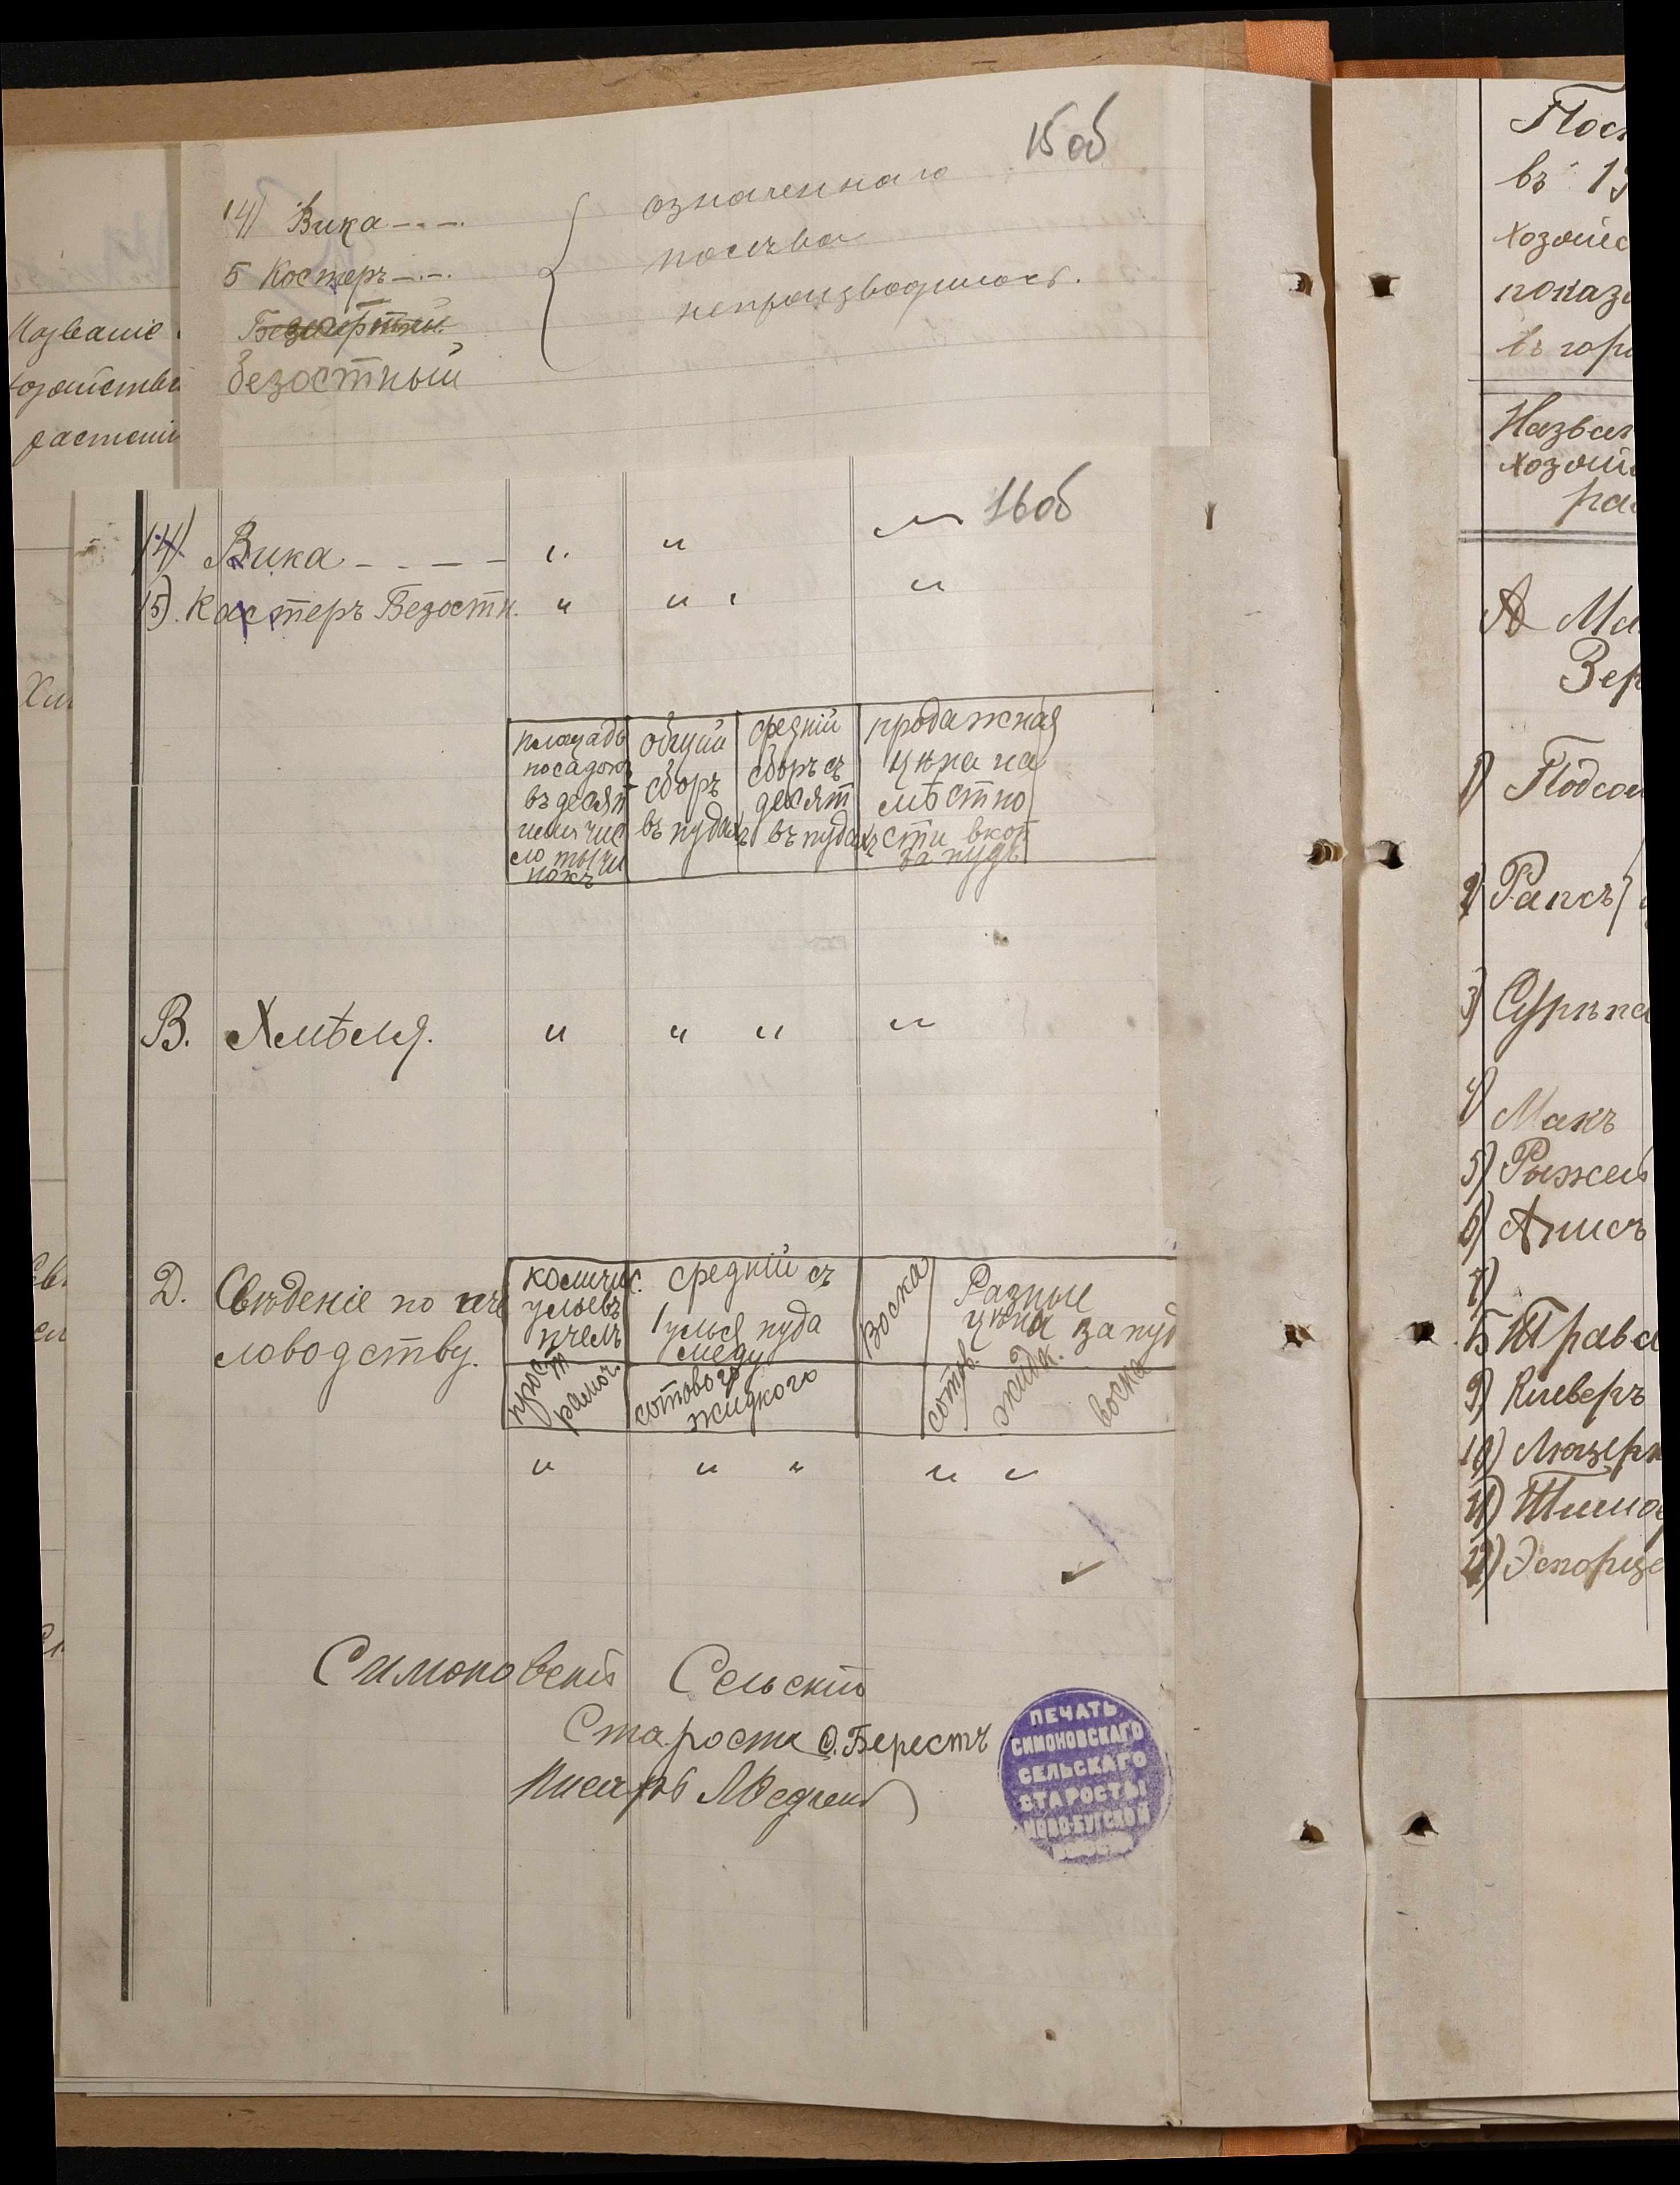 15 об
14) Вика - - -.
5 Костеръ - . - .
безостный
означеннаго
посѣва
непроизводилось.
Названіе
растені
16 об
14) Вика - - - -
15). Костеръ Безостн.
площадь посадокъ въ десят или число тычинокъ
общій сборъ въ пудахъ
средній сборъ съ десят въ пудахъ
продажная цѣна на мѣстности в коп за пудъ
В. Хмѣля.
Д. Свѣденіе по пче
ловодству.
количис. ульевъ пчелъ
средній съ 1 улья пуда меду
Воска
Разные цѣна за пуд
прост рамоч.
сотового жидкого
сотов. жидк. воска
Симоновскій Сельскій
Староста О. Берестъ
Писарь
ПЕЧАТЬ
СИМОНОВСКАГО
СЕЛЬСКАГО
СТАРОСТЫ
НОВО-БУГСКОЙ
Пос
въ 19
хозяйс
показ
въ гор
Назван
хозяй
ра
А Ма
Зер
1) Подсол
2) Рапсъ
3) Сурѣпа
4) Макъ
5) Рыжей
6) Анисъ
7)
Б Трава
9) Клеверъ
10) Люцерн
11) Тимоф
12) Эспорце